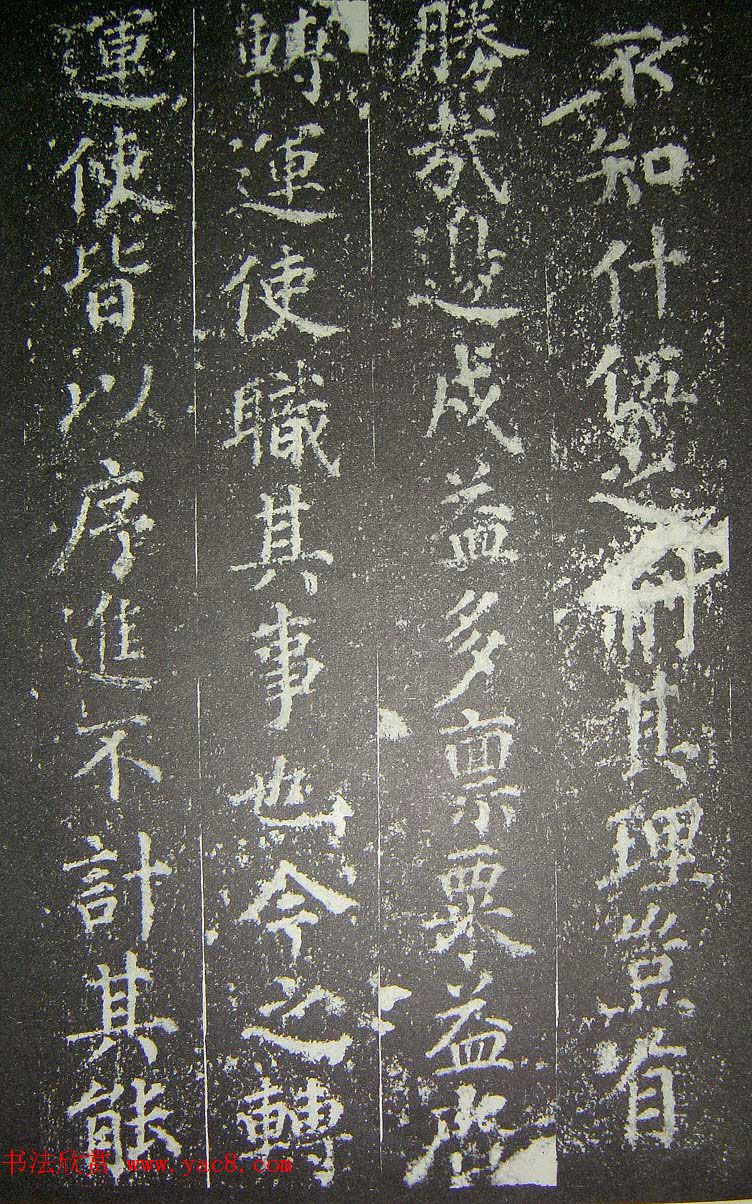 不知什伍之用其理豈有
勝哉邊戍益多禀粟益廣
轉運使職其事也今之轉
運使皆以序進不計其能
书法欣赏 www.yac8.com